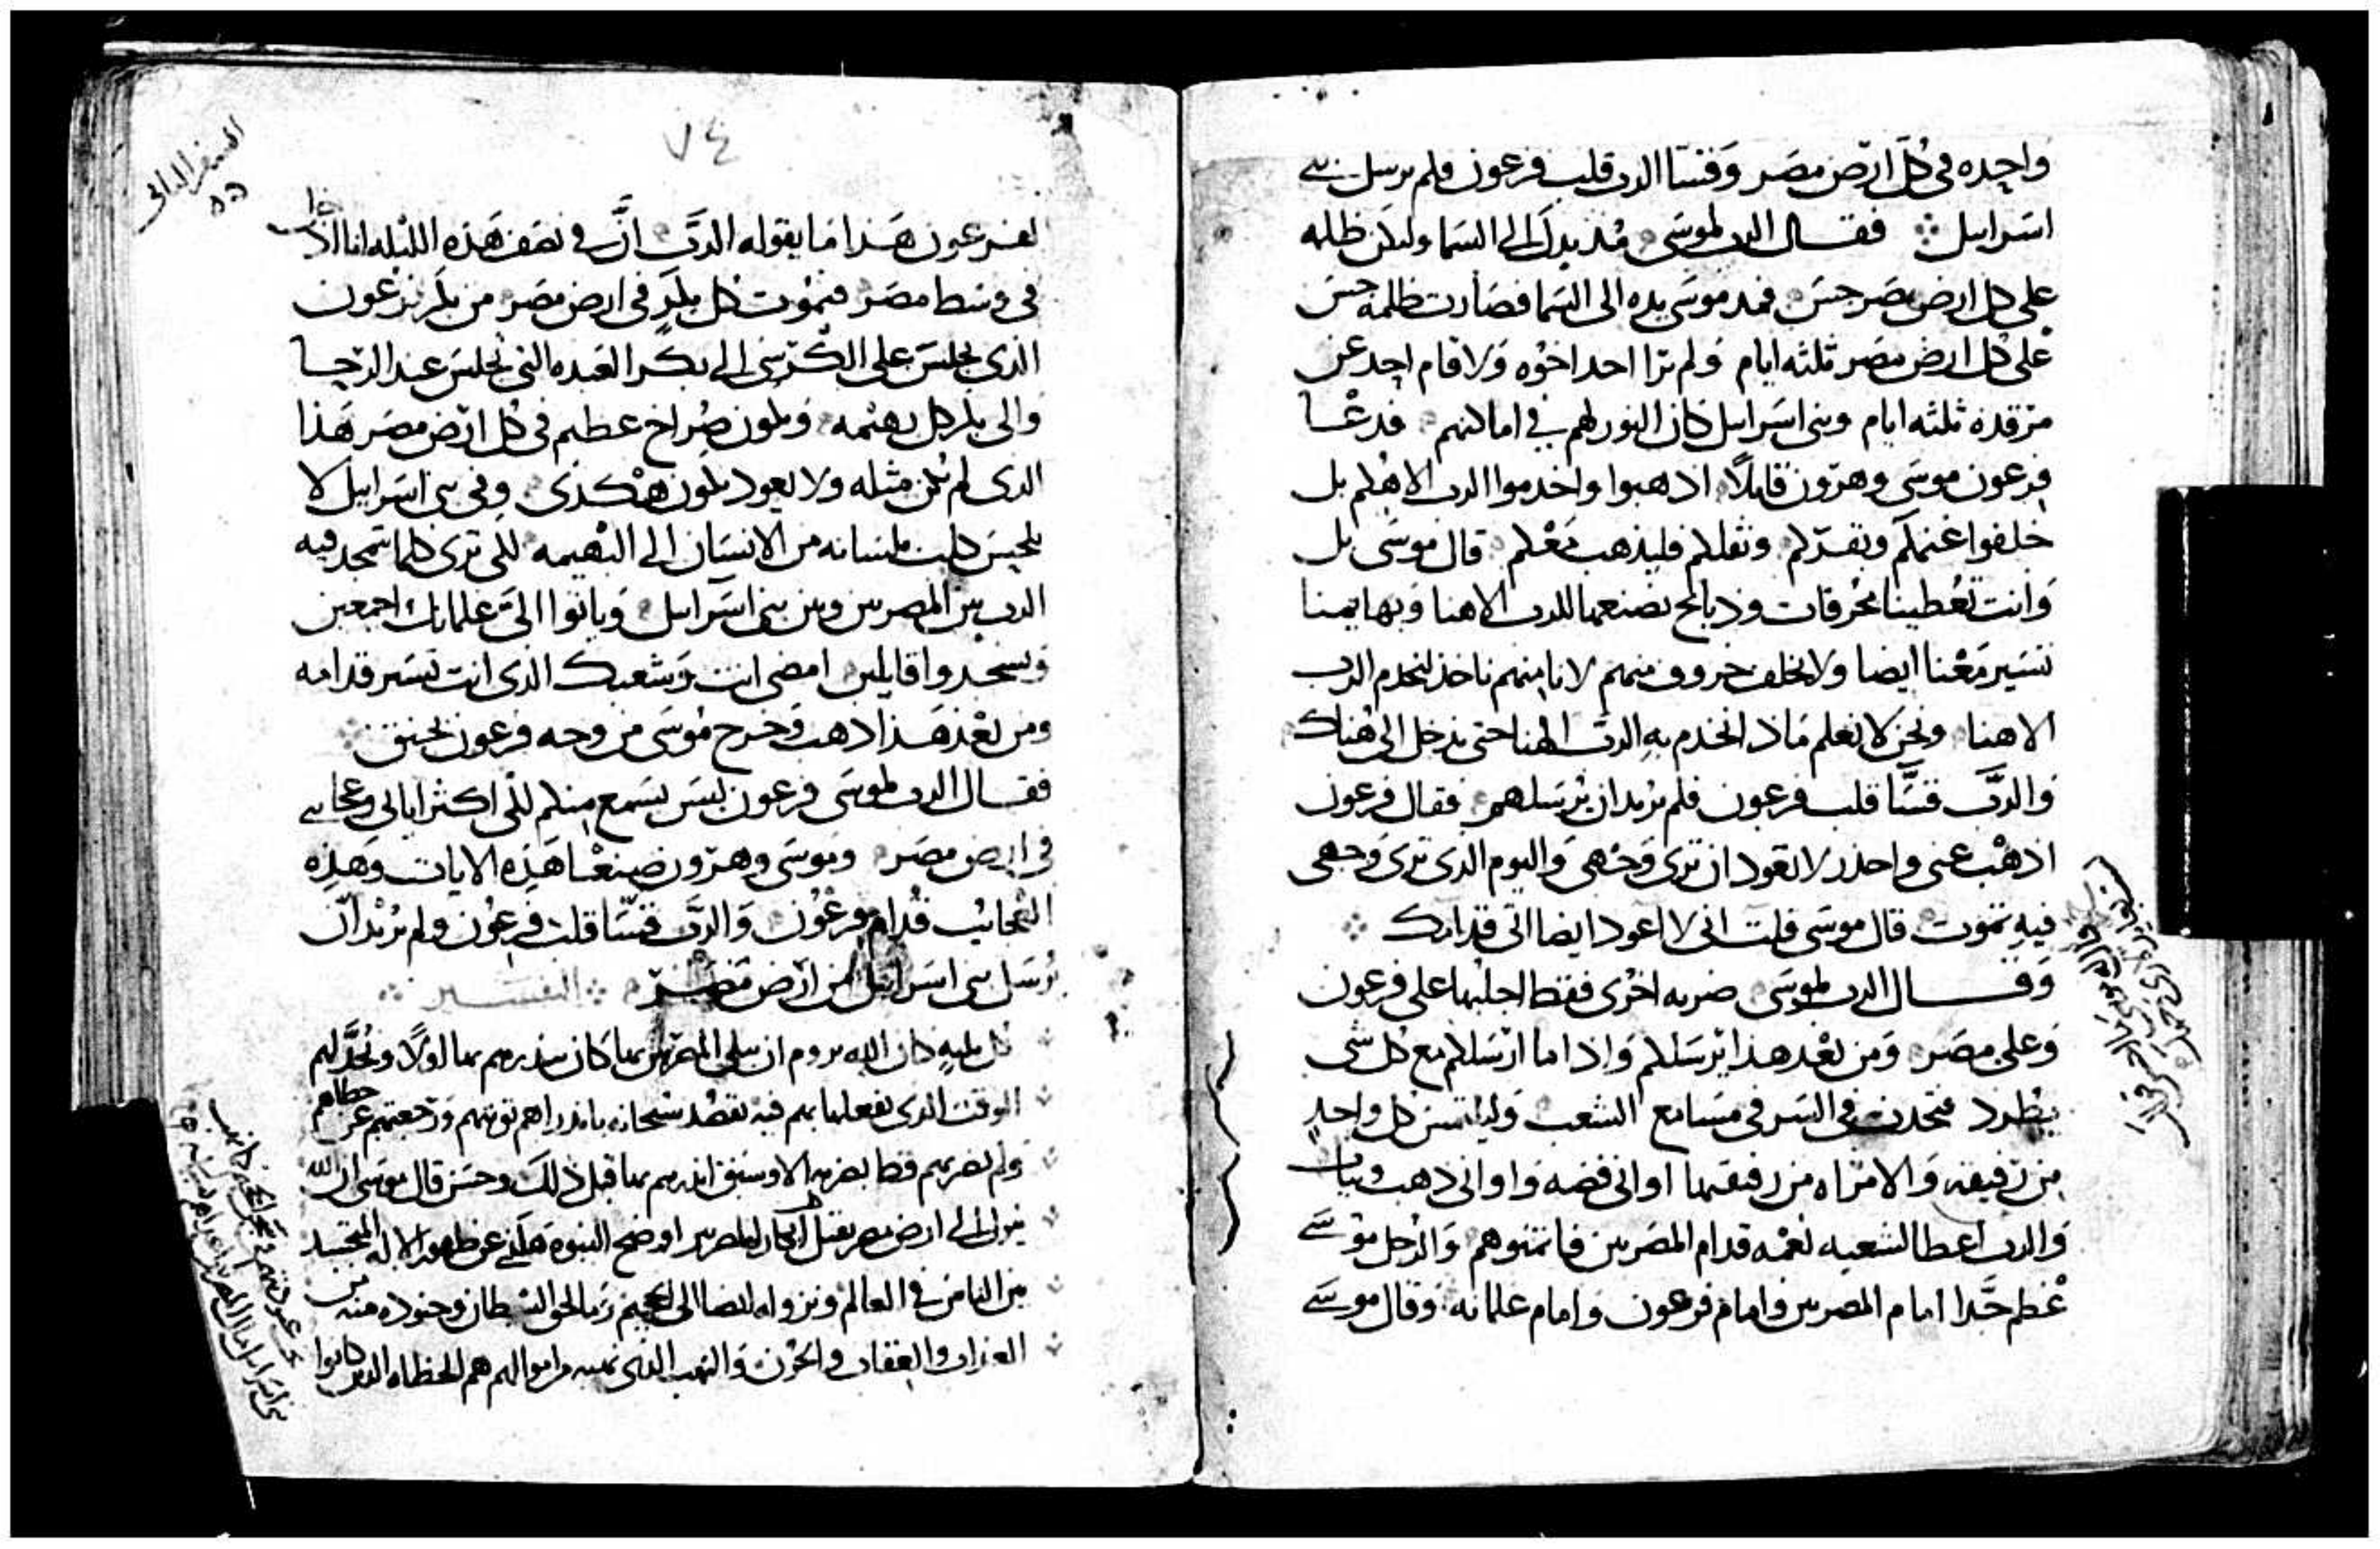 واحده في كل ارض مصر وقسا الرب قلب فرعون فلم يرسل بني
اسراييل فقال الرب لموسى مد يدك الى السما وليكن ظلمه
على كل ارض مصر حس فمد موسى يده الى السما فصارت ظلمه حس
على كل ارض مصر ثلثه ايام ولم ترا احد اخوه ولا قام احد عن
مرقده ثلثه ايام وبني اسراييل كان النور لهم في اماكنهم فدعا
فرعون موسى وهرون قايلا اذهبوا واخدموا الرب الاهكم بل
خلفوا غنمكم وبقركم وثقلكم فليذهب معكم قال موسى بل
وانت تعطينا محرقات وذبايح نصنعها للرب الاهنا وبهايمنا
تسير معنا ايضا ولا نخلف خروف منهم لانا منهم ناخذ لنخدم الرب
الاهنا ونحن لا نعلم ماذا نخدم به الرب الهنا حتى ندخل الى هناك
والرب قسا قلب فرعون فلم يريد ان يرسلهم فقال فرعون
اذهب عني واحذر لا تعود ان ترى وجهي واليوم الذي ترى وجهي
فيه تموت قال موسى قلت اني لا اعود ايضا اتي قدامك
وقال الرب لموسى ضربه اخرى فقط اجلبها على فرعون
وعلى مصر ومن بعد هذا يرسلكم واذا ما ارسلكم مع كل شي
يطرد فتحدث في السر في مسامع الشعب وليلتمس كل واحد
من رفيقه والامراه من رفيقتها اواني فضه واواني ذهب وثياب
والرب اعطا لشعبه نعمه قدام المصريين والرجل موسى
عظم جدا امام المصريين وامام فرعون وامام غلمانه وقال موسى
السفر الثاني
٧٤
لفرعون هذا ما يقوله الرب ان في نصف هذه الليله انا اداخل
في وسط مصر فيموت كل بكر في ارض مصر من بكر فرعون
الذي يجلس على الكرسي الى بكر العبده التي تجلس عند الرحا
والى بكر كل بهيمه ويكون صراخ عظيم في كل ارض مصر هذا
الذي لم يكن مثله ولا يعود يكون هكذى وفي بني اسراييل لا
كلب بلسانه من الانسان الى البهيمه لكي ترى كلما يتمجد فيه
الرب بين المصريين وبين بني اسراييل وياتوا الي غلمانك اجمعين
ويسجدوا قايلين امضي انت وشعبك الذي انت تسير قدامه
ومن بعد هذا اذهب وخرج موسى من وجه فرعون بحنق
فقال الرب لموسى فرعون ليس يسمع منكم لكي اكثر اياتي وعجايبي
في ارض مصر وموسى وهرون صنعا هذه الايات وهذه
العجايب قدام فرعون والرب قسا قلب فرعون ولم يريد ان
يرسل بني اسراييل من ارض مصر التفسير
كل بليه كان الله يروم ان يبلي المصريين بها كان ينذرهم بها اولا ويحد لهم
الوقت الذي يفعلها بهم فيه بقصد سبحانه بانذراهم توبتهم ورجعتهم عن خطاهم
ولم يضربهم قط بضربه الا وسبق انذرهم بها قبل ذلك وحسن قال موسى ان الله
ينزل الى ارض مصر بقتل ابكار المصريين اوضح النبوه هكذى عن ظهور الاله المتجسد
بين الناس في العالم ونزوله ايضا الى الجحيم الشيطان وجنوده منه من
العذاب والعقاب والحزن والنهب الذي نهبه من اموالهم هم الخطاه الذين كانوا